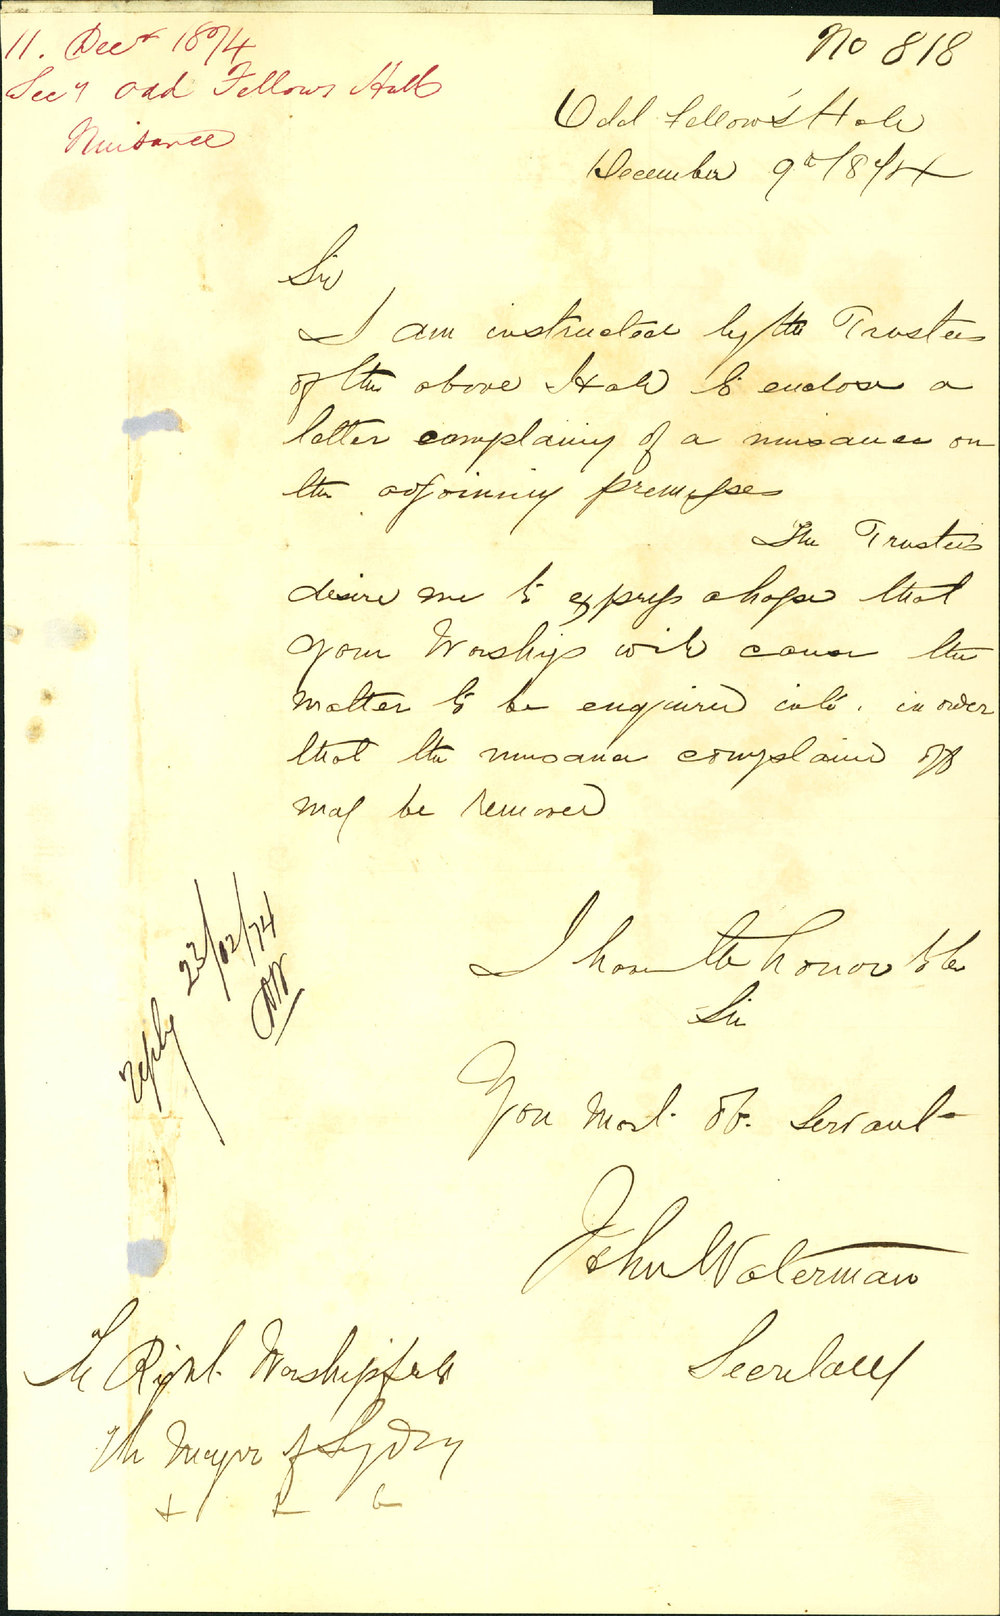 11. Decr 1874
Secy Odd Fellows Hall
Nuisance
No 818
Odd Fellow's Hall
December 9th 1874
Sir
I am instructed by the Trustees
of the above Hall to enclose a
letter complaing of a nuisance on
the adjoining premises
The Trustees
desire me to express a hope that
your Worship will cause the
matter to be enquired into. in order
that the nuisance complained off
may be removed
I have the honor to be
Sir
Your Most Ob. Servant
John Waterman
Secretary
reply 23/12/74
The Right Worshipfull
The Mayor of Sydney